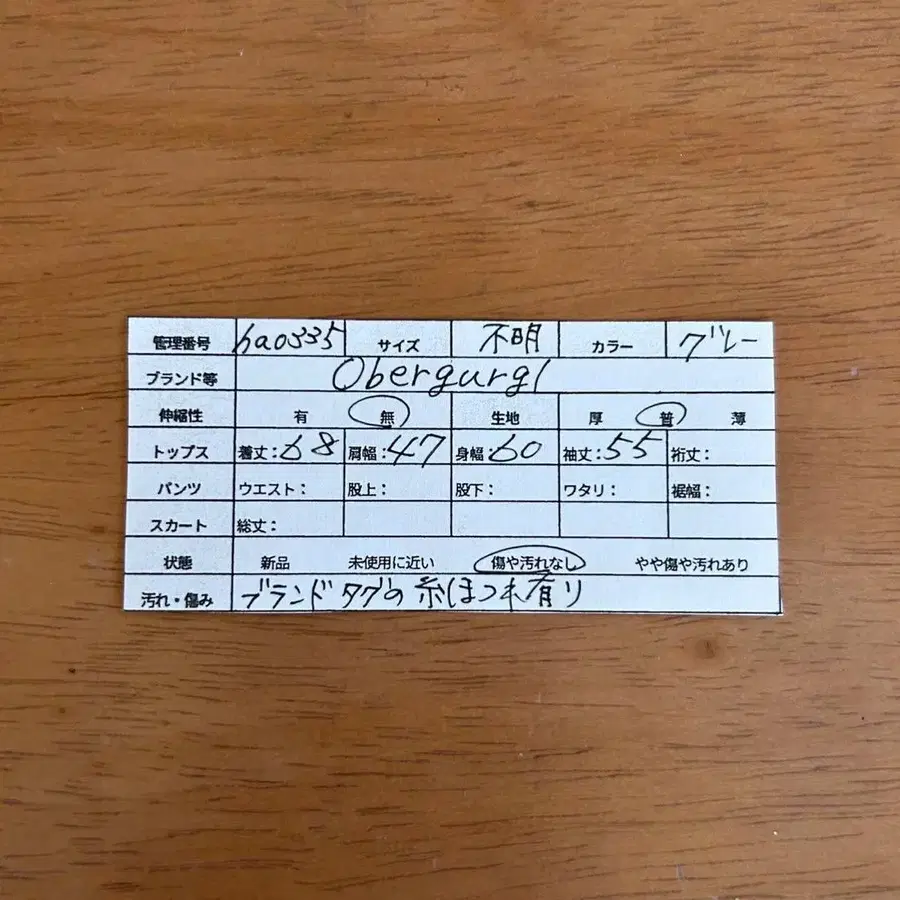 管理番号 hao335 サイズ 不明 カラー グレー
ブランド等 Obergurgl
伸縮性 有 無 生地 厚 普 薄
トップス 着丈:68 肩幅:47 身幅:60 袖丈:55 裄丈:
パンツ ウエスト: 股上: 股下: ワタリ: 裾幅:
スカート 総丈:
状態 新品 未使用に近い 傷や汚れなし やや傷や汚れあり
汚れ・傷み ブランドタグの糸ほつれ有り